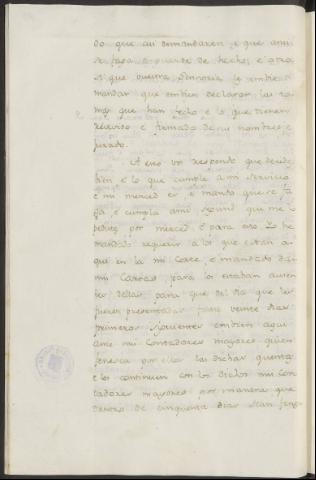 do que asi demandaren, e que ansi
se faga e guarde de fecho, e otro
si que vuestra Señoria le
mandar que embien declarar las
que han fecho e lo que tienen
recevido e firmado de sus nombres e
jurado.
A esto vos respondo que decides
bien e lo que cumple a mi servicio
e mi merced es, e mando que se fa
ga, e cumpla ansi segund que me lo
pedides por merced, e para esto Yo he
mandado requerir a los que estan a
qui en la mi Corte, e mandado dar
mis Cartas para los que estaban ausen
tes dellas para que del dia que les
fueren presentadas fasta veinte dias
primeros siguientes embien aqui
ante mis Contadores mayores quien
fenesca por ellos las dichas quentas
e los continuen con los dichos mis Con
tadores mayores por manera que
dentro de cinquenta dias sean fene